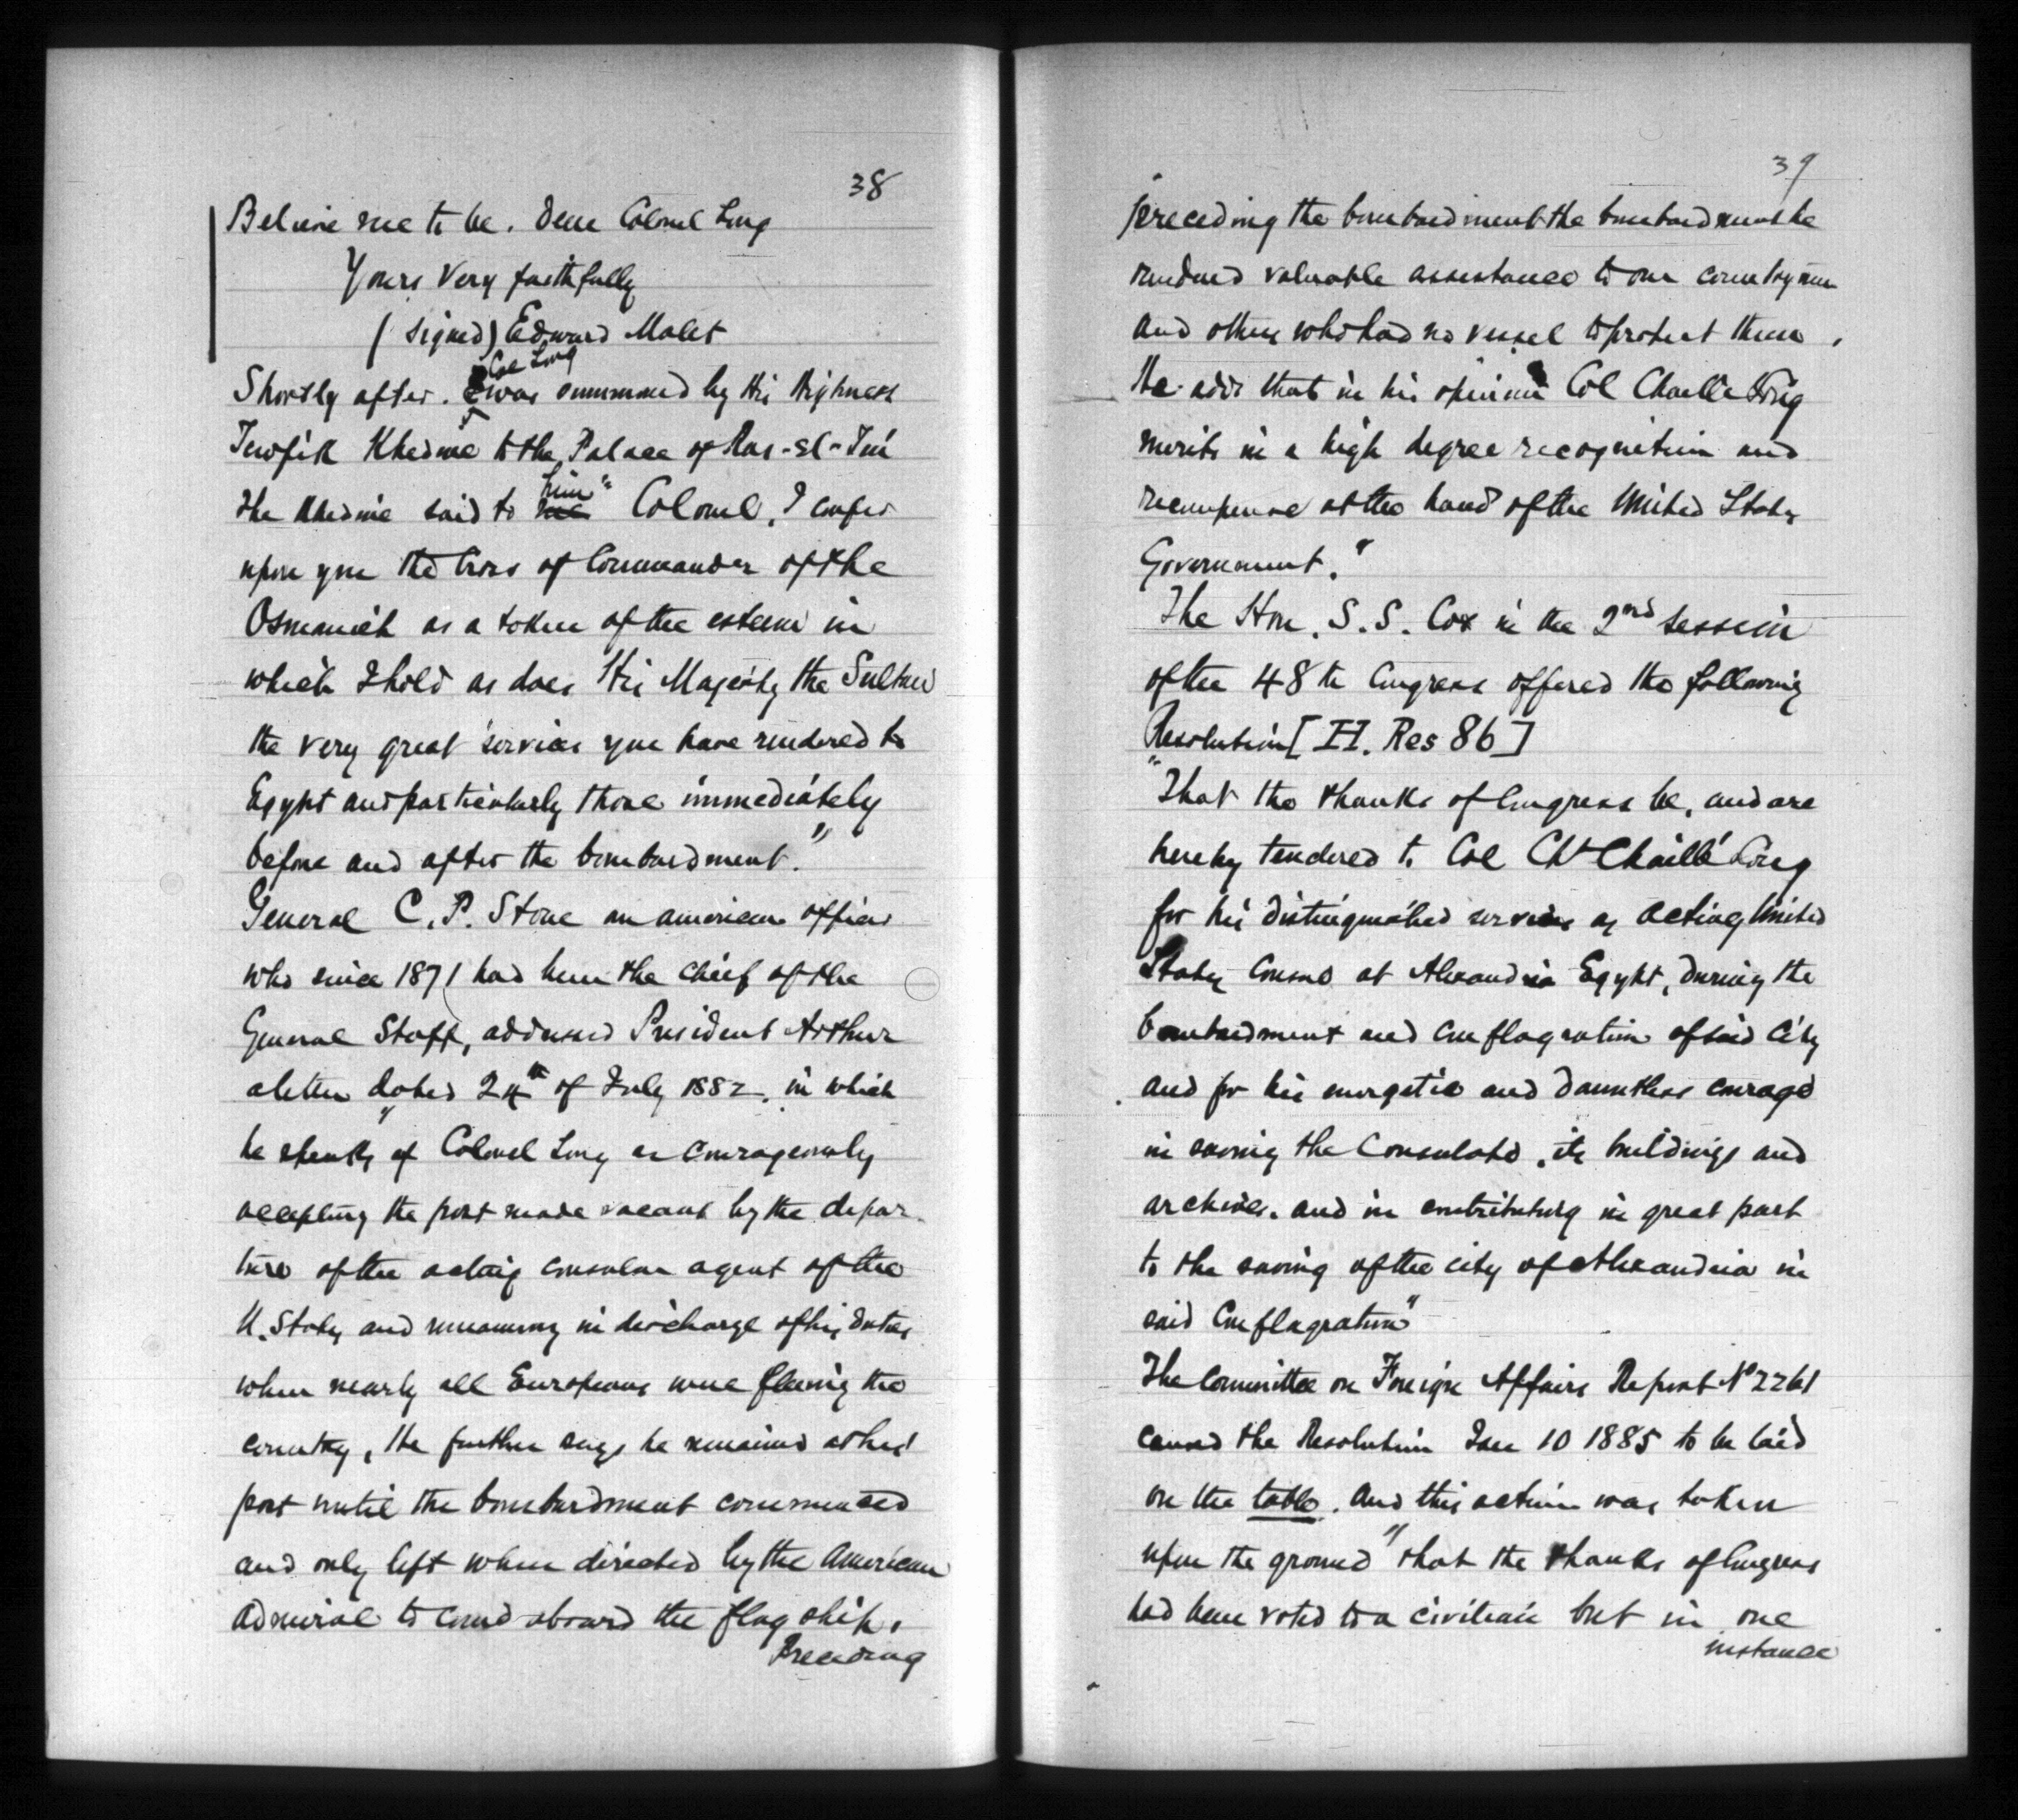 38
Believe me to be. Dear Colonel Long
Yours Very faithfully
(signed) Edward Malet
Col Long
Shortly after. was summoned by His Highness
Tewfik Khedive to the Palace of Ras-el-Tin
him
The Khedive said to me "Colonel, I confer
upon you the Cross of Commander of the
Osmanieh as a token of the esteem in
which I hold as does His Majesty the Sultan
the very great services you have rendered to
Egypt and particularly those immediately
before and after the bombardment."
General C. P. Stone an american officer
who since 1871 had been the chief of the
General Staff, addressed President Arthur
a letter dated 24th of July 1882. in which
he speaks of "Colonel Long as courageously
accepting the post made vacant by the depar-
ture of the acting consular agent of the
U. States and remaining in discharge of his duties
when nearly all Europeans were fleeing the
country, He further says he remained at his
post until the bombardment commenced
and only left when directed by the American
Admiral to come aboard the flag ship.
Preceding
39
preceding the bombardment the bombardment he
rendered valuable assistance to our countrymen
and others who had no vessel to protect them.
He adds that in his opinion Col Chaillé Long
merits in a high degree recognition and
recompense at the hand of the United States
Government."
The Hon. S. S. Cox in the 2nd session
of the 48th Congress offered the following
Resolution [H. Res 86]
"That the thanks of Congress be, and are
hereby tendered to Col Chs Chaillé Long
for his distinguished services as acting United
States Consul at Alexandria Egypt, during the
bombardment and conflagration of said City
and for his energetic and dauntless courage
in saving the Consulate, its buildings and
archives. and in contributing in great part
to the saving of the city of Alexandria in
said Conflagration"
The Committee on Foreign Affairs Report No 2261
caused the Resolution Jan 10 1885 to be laid
on the table. And this action was taken
upon the ground "that the thanks of Congress
had been voted to a civilian but in one
instance